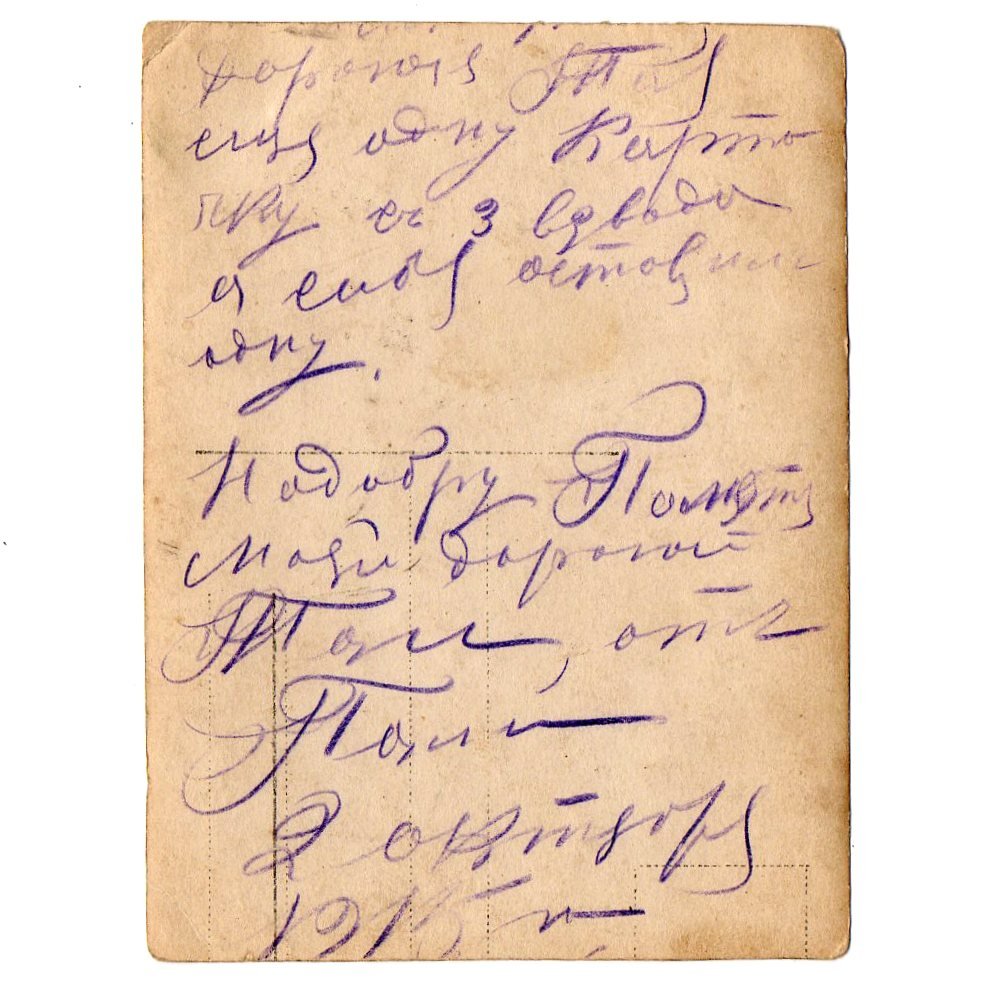 Дорогая Тая
еще одну карто
чку съ 3 взвода
я себя оставила
одну.
На добру Память
моей дорогой
Таи, отъ
Пали
2 октября
1915 г.